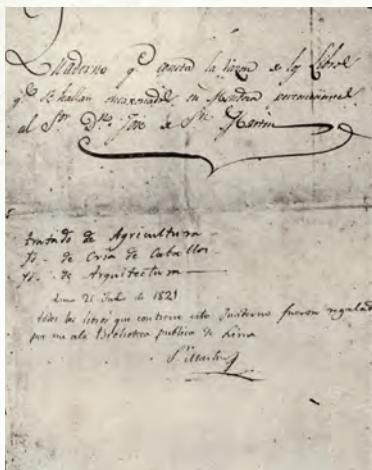 Quaderno qe consta la razon de los Libros
qe se hallan encaxonados en Mendoza pertenecientes
al Sor Dn Jose de Sn Martin
tratado de Agricultura
Yd. de Cria de Caballos
Yd. de Arquitectura
Lima 21 Julio de 1821
todos los libros que contiene este Quaderno fueron regalad
por mi ala Biblioteca publica de Lima
Sn Martin